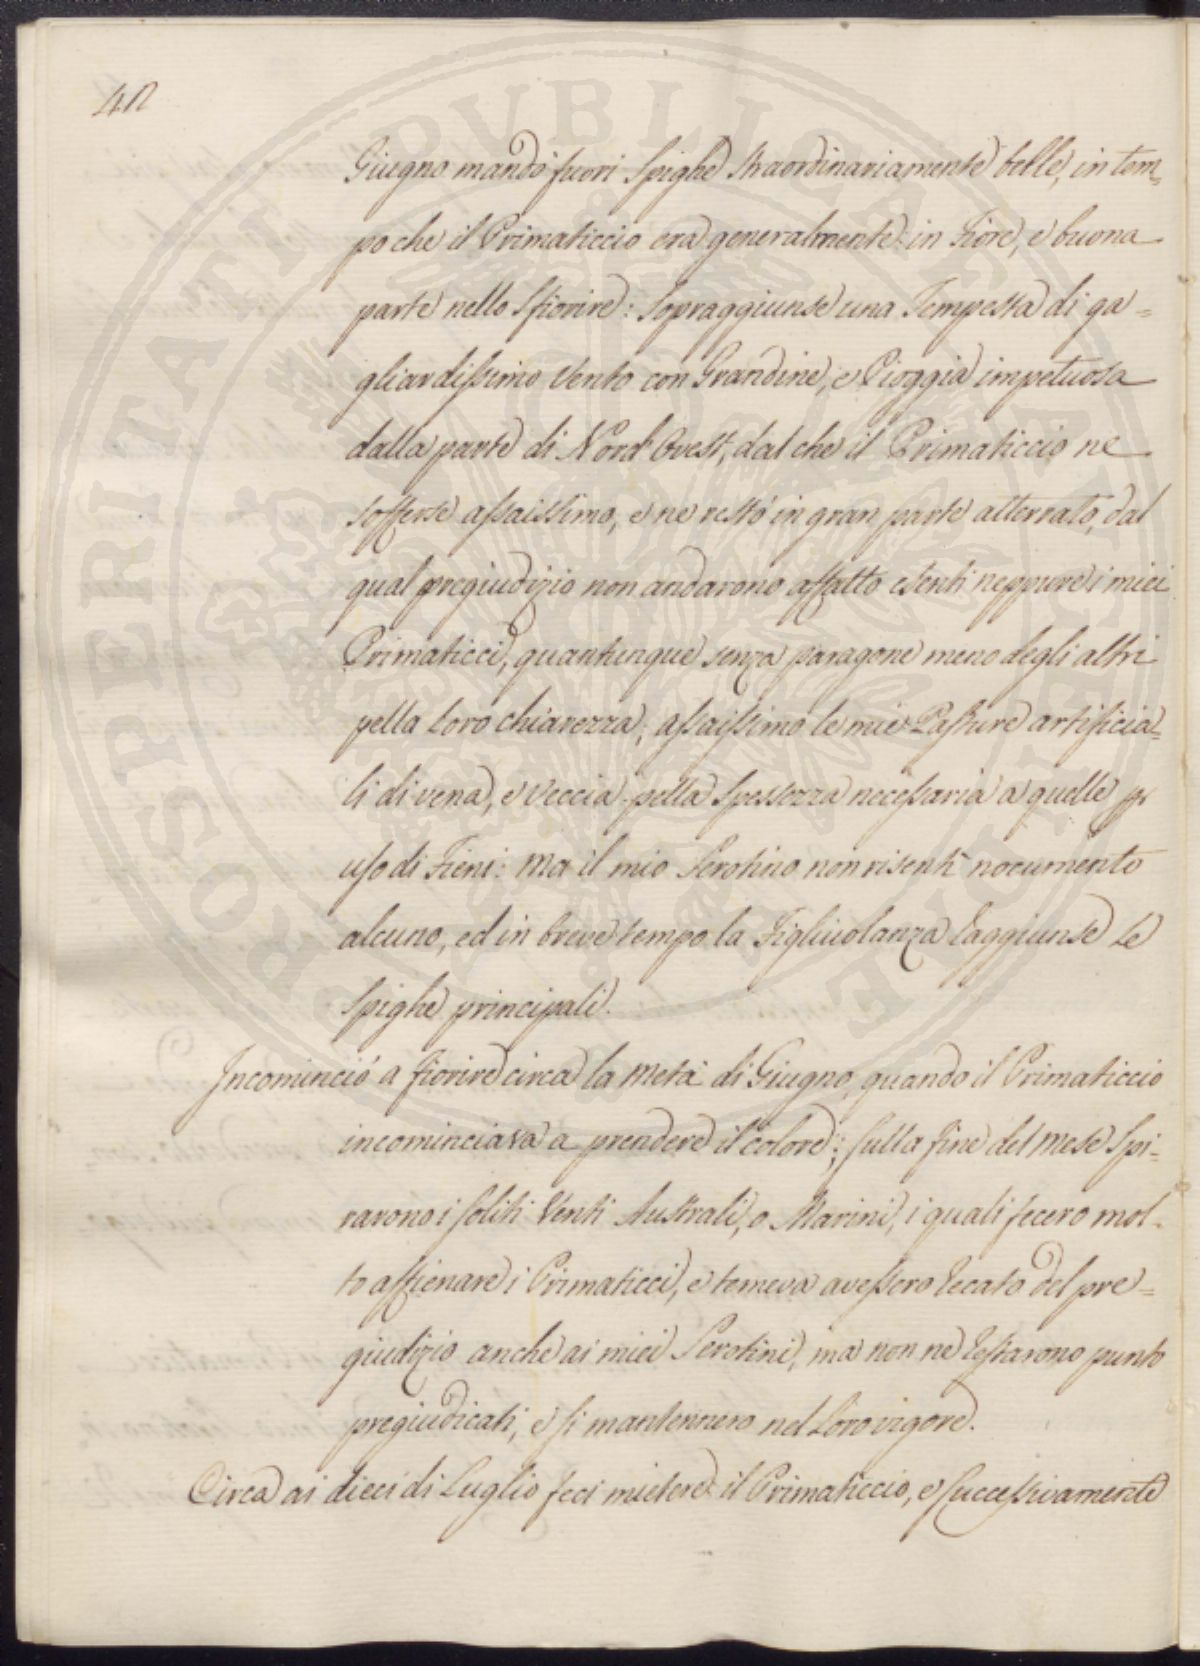 42
Giugno mandò fuori Spighe straordinariamente belle, in tem=
po che il Primaticcio era generalmente in Fiore, e buona
parte nello sfiorire: Sopraggiunse una Tempesta di ga=
gliardissimo Vento con Grandine, e Pioggia impetuosa
dalla parte di Nord Ovest, dal che il Primaticcio ne
sofferse assaissimo, e ne restò in gran parte atterrato, dal
qual pregiudizio non andarono affatto esenti neppure i miei
Primaticci, quantunque senza paragone meno degli altri
pella loro chiarezza; assaissimo le mie Pasture artificia=
li di vena, e Veccia pella Spessezza necessaria a quelle pr
uso di Fieni: Ma il mio Serotino non risentì nocumento
alcuno, ed in breve tempo la Figliuolanza raggiunse le
Spighe principali.
Incominciò a fiorire circa la Metà di Giugno, quando il Primaticcio
incominciava a prendere il colore; Sulla fine del Mese Spi=
rarono i soliti Venti Australi, o Marini, i quali fecero mol=
to affienare i Primaticci, e temeva avessero recato del pre=
giudizio anche ai miei Serotini, ma non ne restarono punto
pregiudicati, e si mantennero nel Loro vigore.
Circa ai dieci di Luglio feci mietere il Primaticcio, e successivamente
PROSPERITATI PUBLICAE AUGENDAE